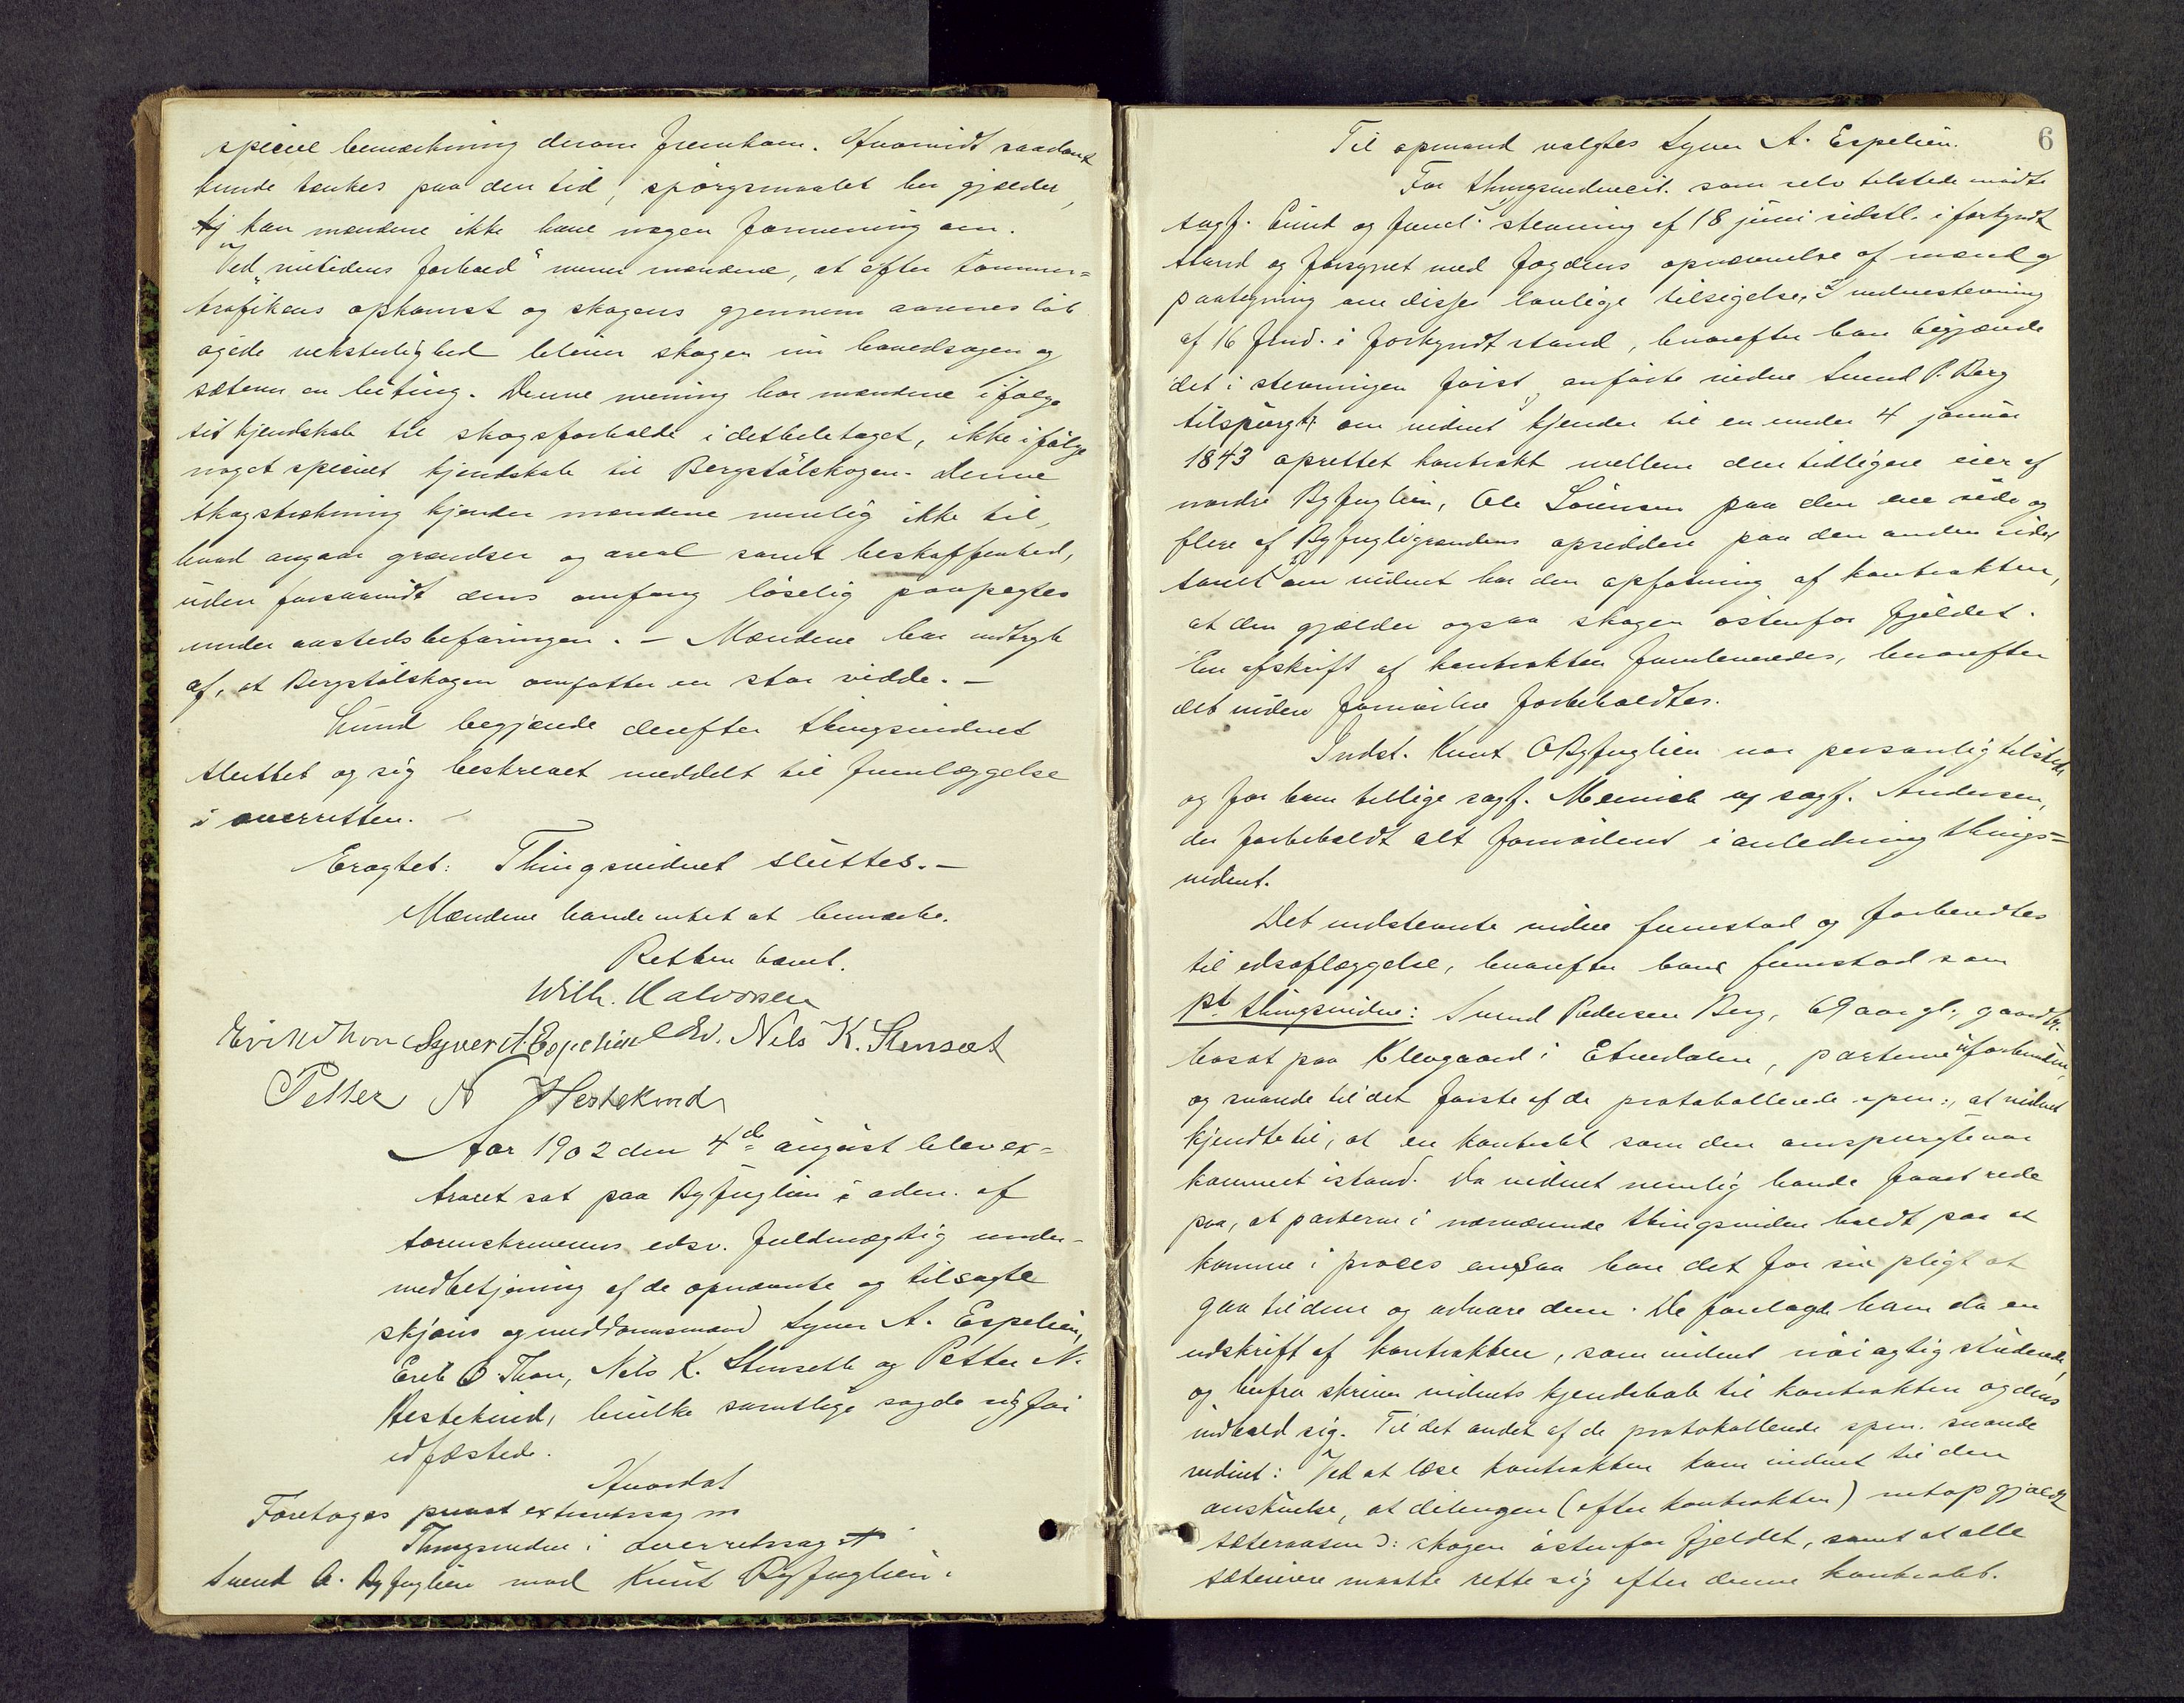 speciel bemærkning derom fremkom. Hvorvidt saadant
kunde tænkes paa den tid, spørgsmaalet her gjælder,
kan mændene ikke have nogen formening om.
Ved "nutidens forhold" mener mændene, at efter tømmer-
trafikens opkomst og skogens gjennem aarenes løb
øgede vekstelighed bliver skogen nu hovedsagen og
sæteren en biting. Denne mening har mændene ifølge
sit kjendskab til skogsforholde i det hele taget, ikke ifølge
noget specielt kjendskab til Bergstølskogen. Denne
skogstrækning kjender mændene nemlig ikke til,
hvad angaar grændser og areal samt beskaffenhed,
uden forsaavidt dens omfang løselig paapegtes
under aastedsbefaringen. – Mændene har indtryk
af, at Bergstølskogen omfatter en stor vidde. –
Lund begjærede derefter thingsvidnet
sluttet og sig beskrevet meddelt til fremlæggelse
i overretten. –
Eragtet: Thingsvidnet sluttes. –
Mændene havde intet at bemærke.
Retten hævet.
Wilh. Halvorsen
Erik O Thon Syver A. Espelien Ed. Nils K. Stensæt
Petter N Hestekind
Aar 1902 den 4de august blev ex-
traret sat paa Byfuglien i aden. af
sorenskriverens edsv. fuldmægtig under
medbetjening af de opnævnte og tilsagte
skjøns og meddomsmænd Syver A. Espelien,
Erik O Thon, Nils K. Stensætt og Petter N.
Hestekind, hvilke samtlige sagde sig før
edfæstede.
Hvorda
Foretoges privat extraretssag
Thingsvidne i overretssag
Svend A. Byfuglien mod Knut Byfuglien.
6
Til opmand valgtes Syver A. Espelien.
For thingsvidnecit. som selv tilstede mødte
sagf. Lund og freml. stevning af 18 juni sidstl. i forkyndt
stand og forsynet med fogdens opnævnelse af mænd og
paategning om disses lovlige tilsigelse, vidnestevning
af 16 f. md. i forkyndt stand, hvorefter han begjærede
det i stevningen først anførte vidne Svend P. Berg
tilspurgt: om vidnet kjender til en under 4 januar
1843 oprettet kontrakt mellem den tidligere eier af
nordre Byfuglien, Ole Sørensen paa den ene side og
flere af Byfugligrændens opsiddere paa den anden side,
samt om vidnet har den opfatning af kontrakten,
at den gjælder ogsaa skogen østenfor fjeldet.
En afskrift af kontrakten fremleveredes, hvorefter
det videre fornødne forbeholdtes.
Indst. Knut O Byfuglien var personlig tilstede
og for ham tillige sagf. Meinich og sagf. Andersen,
der forbeholdt alt fornødent i anledning things-
vidnet.
Det indstevnte vidne fremstod og forberedtes
til edsaflæggelse, hvorefter han fremstod som
1st thingsvidne: Svend Pedersen Berg, 69 aar gl., gaardbr.
bosat paa Klevgaard i Etnedalen, parterne uforbunden,
og svarede til det første af de protokollerede spm., at vidnet
kjendte til, at en kontrakt som den omspurgte var
kommet istand. Da vidnet nemlig havde faaet rede
paa, at parterne i nærværende thingsvidne holdt paa at
komme i proces ansaa han det for sin pligt at
gaa til dem og advare dem. De forelagde ham da en
udskrift af kontrakten, som vidnet nøiagtig studerede,
og herfra skriver vidnets kjendskab til kontrakten og dens
indhold sig. Til det andet af de protokollerede spm. svarede
vidnet: Ved at læse kontrakten kom vidnet til den
anskuelse, at delingen (efter kontrakten) netop gjaldt
sæteraasen ɔ: skogen østenfor fjeldet, samt at alle
sætereiere maatte rette sig efter denne kontrakt.